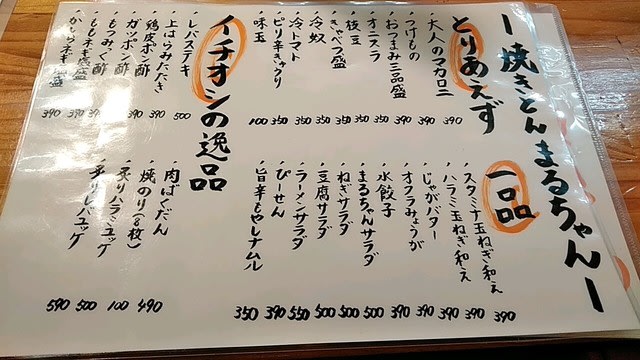 ー焼きとんまるちゃんー
とりあえず
・大人のマカロニ 390
・つけもの 390
・おつまみ三品盛 390
・オニスラ 350
・枝豆 350
・きゃべつ盛 350
・冷奴 350
・冷トマト 350
・ピリ辛キュウリ 350
・味玉 100
イチオシの逸品
・レバステキ 500
・上はらみたたき
・鶏皮ポン酢 390
・ガツポン酢 390
・もつみぐ酢
・ももネギ塩盛
・かしらネギ塩盛 390
・肉ばくだん 490
・焼のり(5枚) 100
・炙りハラミユッケ 500
・炙りレバユッケ 590
一品
・スタミナ玉ねぎ和え 390
・ハラミ玉ねぎ和え 390
・じゃがバター 390
・オクラみょうが 390
・水餃子 390
・まるちゃんサラダ 500
・ねぎサラダ 500
・豆腐サラダ 500
・ラーメンサラダ 550
・ぴーせん 390
・旨辛もやしナムル 350